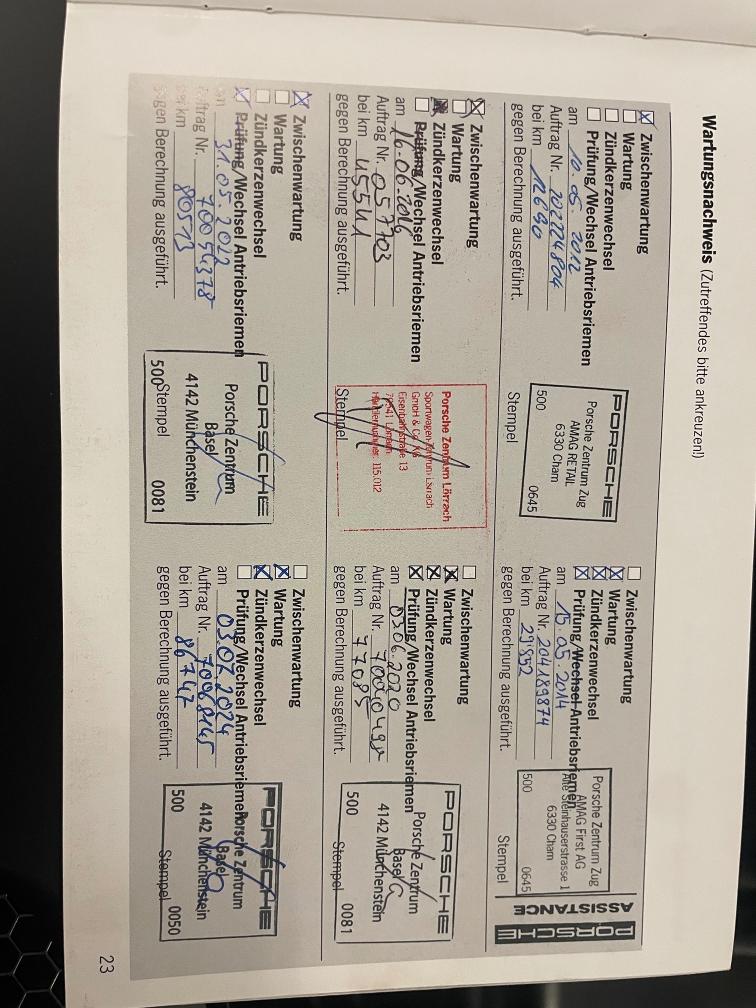 Wartungsnachweis (Zutreffendes bitte ankreuzen!)
Zwischenwartung
Wartung
Zündkerzenwechsel
Prüfung/Wechsel Antriebsriemen
am 10.05 2012
Auftrag Nr. 202224804
bei km 12690
gegen Berechnung ausgeführt.
PORSCHE
Porsche Zentrum Zug
AMAG RETAIL
6330 Cham
500 0645
Stempel
Zwischenwartung
Wartung
Zündkerzenwechsel
Prüfung/Wechsel Antriebsriemen
am 15.05.2014
Auftrag Nr. 204189874
bei km 29852
gegen Berechnung ausgeführt.
Porsche Zentrum Zug
AMAG First AG
Alte Steinhauserstrasse 1
6330 Cham
500 0645
Stempel
ASSISTANCE
PORSCHE
Zwischenwartung
Wartung
Zündkerzenwechsel
Prüfung/Wechsel Antriebsriemen
am 16.06.2016
Auftrag Nr. 057703
bei km 45541
gegen Berechnung ausgeführt.
Porsche Zentrum Lörrach
Sportwagen Zentrum Lörrach
GmH & Co. KG
Eisenbahnstraße 13
79541 Lörrach
Händlernummer: 115.012
Stempel
Zwischenwartung
Wartung
Zündkerzenwechsel
Prüfung/Wechsel Antriebsriemen
am 03.06.2020
Auftrag Nr.
bei km 77085
gegen Berechnung ausgeführt.
PORSCHE
Porsche Zentrum
Basel
4142 Münchenstein
500 0081
Stempel
Zwischenwartung
Wartung
Zündkerzenwechsel
Prüfung/Wechsel Antriebsriemen
am 31.05.2022
Auftrag Nr. 70054378
bei km 80513
gegen Berechnung ausgeführt.
PORSCHE
Porsche Zentrum
Basel
4142 Münchenstein
500 0081
Stempel
Zwischenwartung
Wartung
Zündkerzenwechsel
Prüfung/Wechsel Antriebsriemen
am 03.07.2024
Auftrag Nr. 70068145
bei km 86747
gegen Berechnung ausgeführt.
PORSCHE
Porsche Zentrum
Basel
4142 Münchenstein
500 0050
Stempel
23